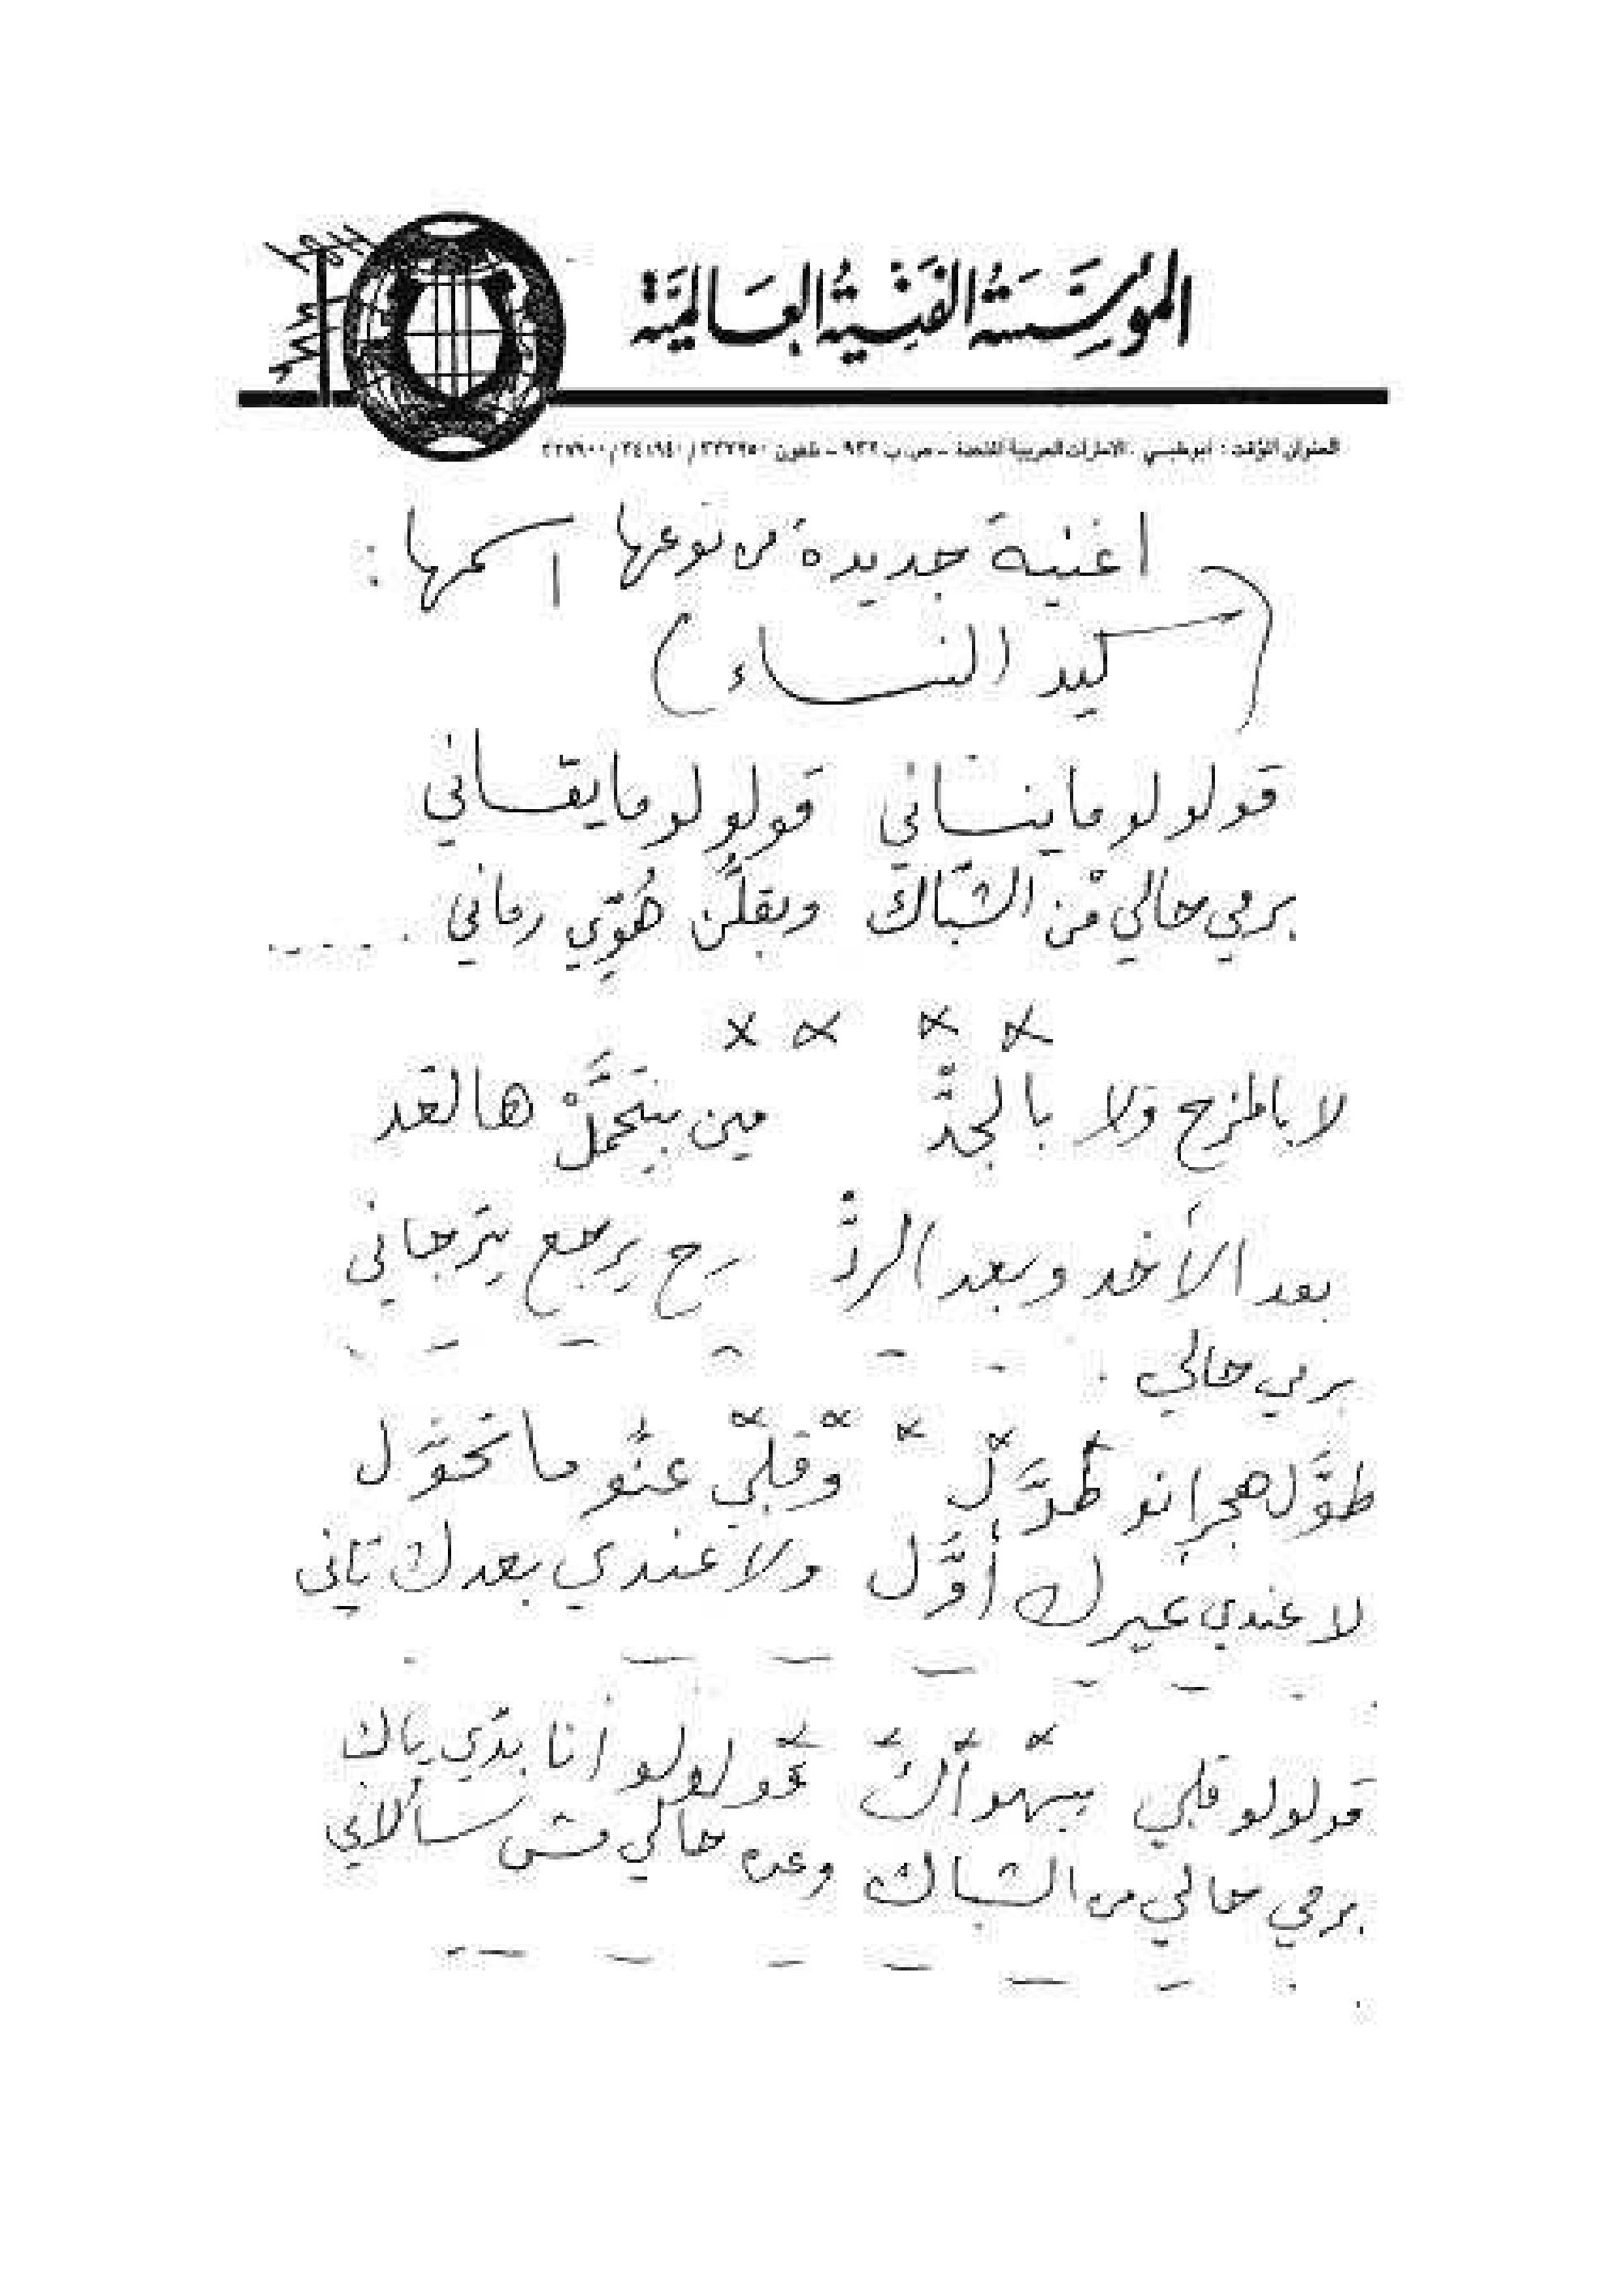 المؤسسة الفنية العالمية
العنوان المؤقت : أبوظبي . الامارات العربية المتحدة - ص ب ٩٣٢ - تلفون
اغنية جديدة من نوعها اسمها :
(كيد النساء)
قولولو ما ينساني قولولو ما يقساني
برمي حالي من الشباك وبقلن هوي رماني .....
x x x x
لا بالمزح ولا بالجد مين بيتحمل هالقد
بعد الأخد وبعد الرد رح يرجع يترجاني
برمي حالي .
طول هجرانو طول وقلبي عنو ما تحول
لا عندي غيرك أول ولا عندي بعدك تاني
قولولو قلبي بيهواك قولولو أنا بدي ياك
برمي حالي من الشباك وعن حالي مش سألاني